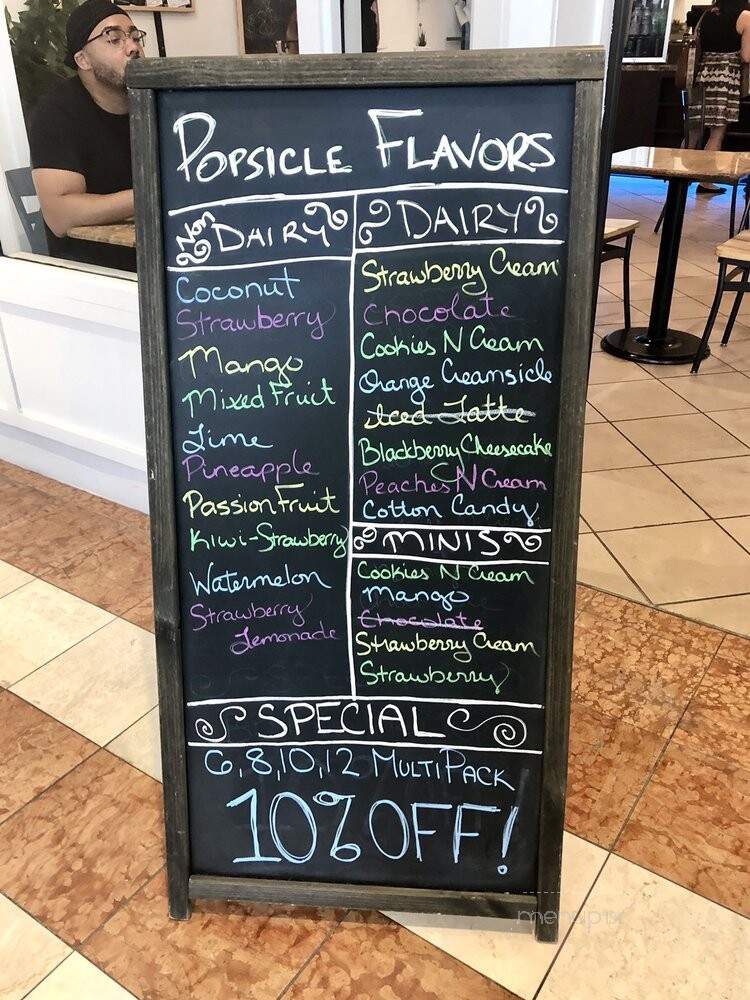 POPSICLE FLAVORS
Non DAIRY
Coconut
Strawberry
Mango
Mixed Fruit
Lime
Pineapple
Passion Fruit
Kiwi-Strawberry
Watermelon
Strawberry
Lemonade
DAIRY
Strawberry Cream
Chocolate
Cookies N Cream
Orange Creamsicle
Iced Latte
Blackberry Cheesecake
Peaches N Cream
Cotton Candy
MINIS
Cookies N Cream
Mango
Chocolate
Strawberry Cream
Strawberry
SPECIAL
6,8,10,12 MULTIPACK
10% OFF!
menupix